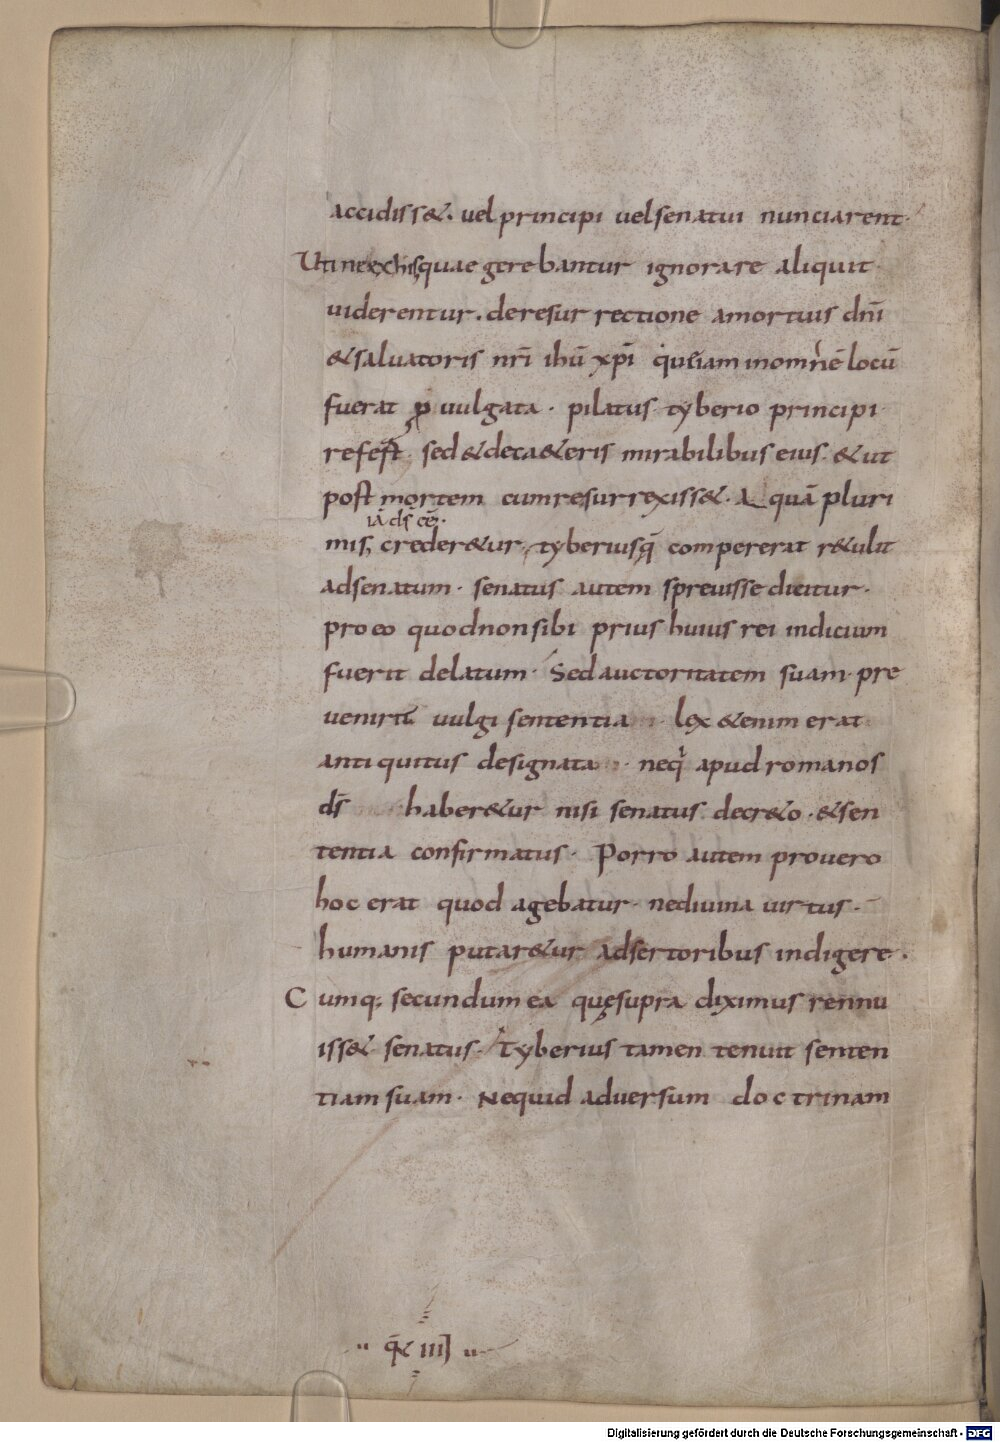 accidiss&. uel principi uel senatui nunciarent·
Uti ne ex his quae gerebantur ignorare aliquit·
uiderentur. de resurrectione a mortuis dn̄i
& saluatoris nr̄i ihū xp̄i locū
fuerat ꝑuulgata· pilatus tyberio principi·
refert· sed & de ca&eris mirabilibus eius· & ut
post mortem cum resurrexiss&· A quā pluri
iā ds̄ eē·
mis, creder&ur, tyberius q̄ compererat r&ulit
ad senatum· senatus autem spreuisse dicitur·
pro eo quod non sibi prius huius rei indicium
fuerit delatum· Sed auctoritatem suam· pre
uulgi sententia· lex &enim erat
antiquitus designata· neq; apud romanos
ds̄ haber&ur nisi senatus decr&o· & sen
tentia confirmatus· Porro autem pro uero
hoc erat quod agebatur· ne diuina uirtus·
humanis putar&ur adsertoribus indigere.
Cumq; secundum ea quę supra diximus rennu
iss& senatus· Tyberius tamen tenuit senten
tiam suam· Ne quid aduersum doctrinam
III
Digitalisierung gefördert durch die Deutsche Forschungsgemeinschaft - DFG